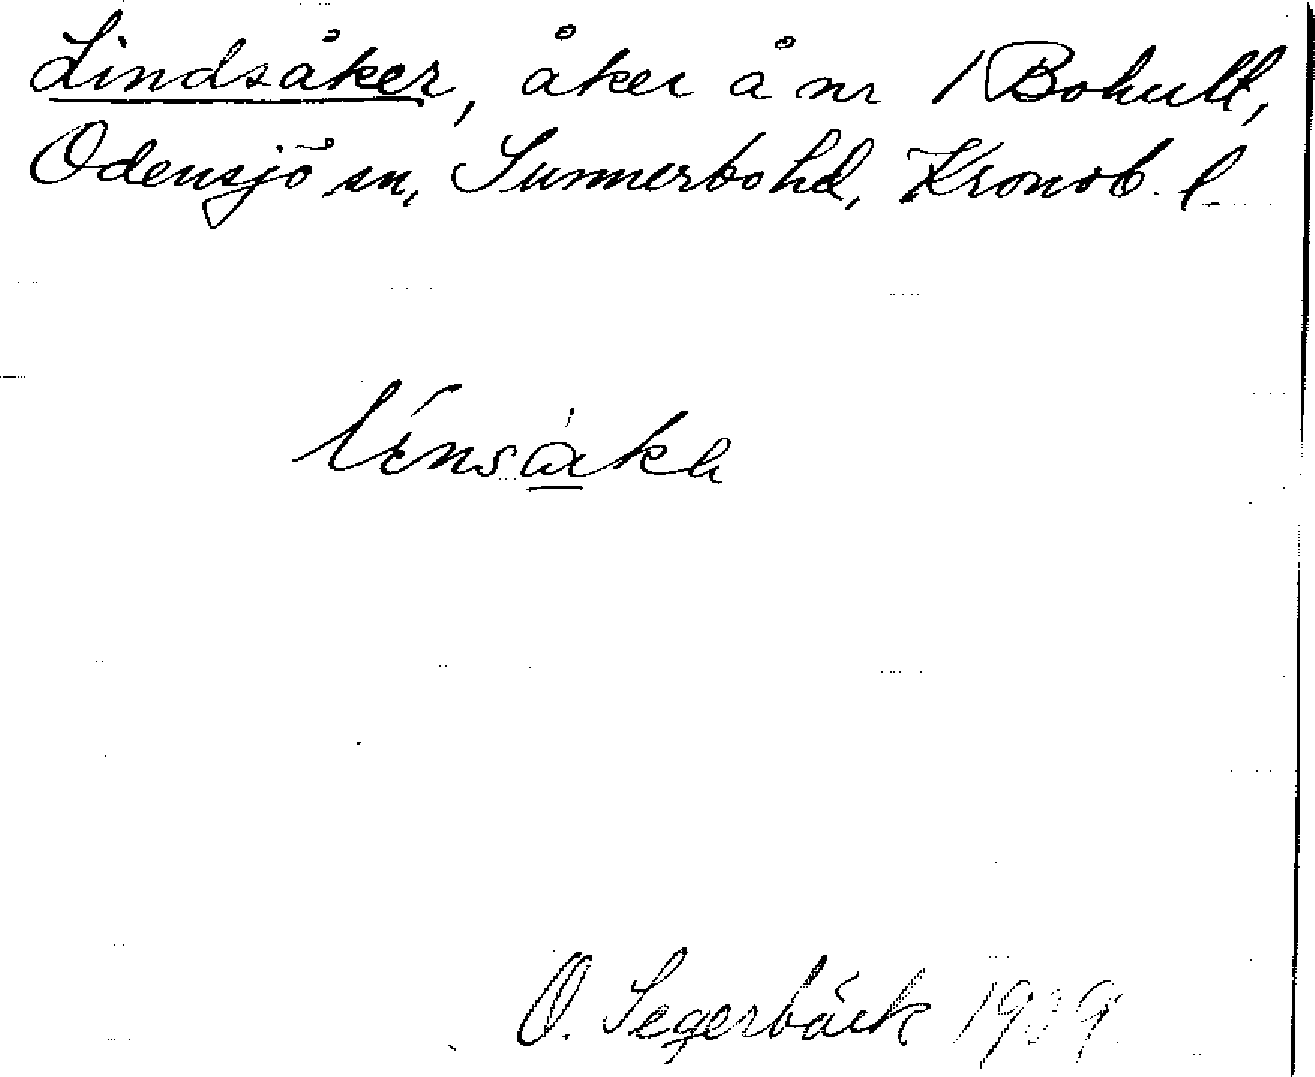 Lindsåker, åker å nr 1 Bohult,
Odensjö sn, Sunnerbo hd, Kronob. l.
O. Segerbäck 1939